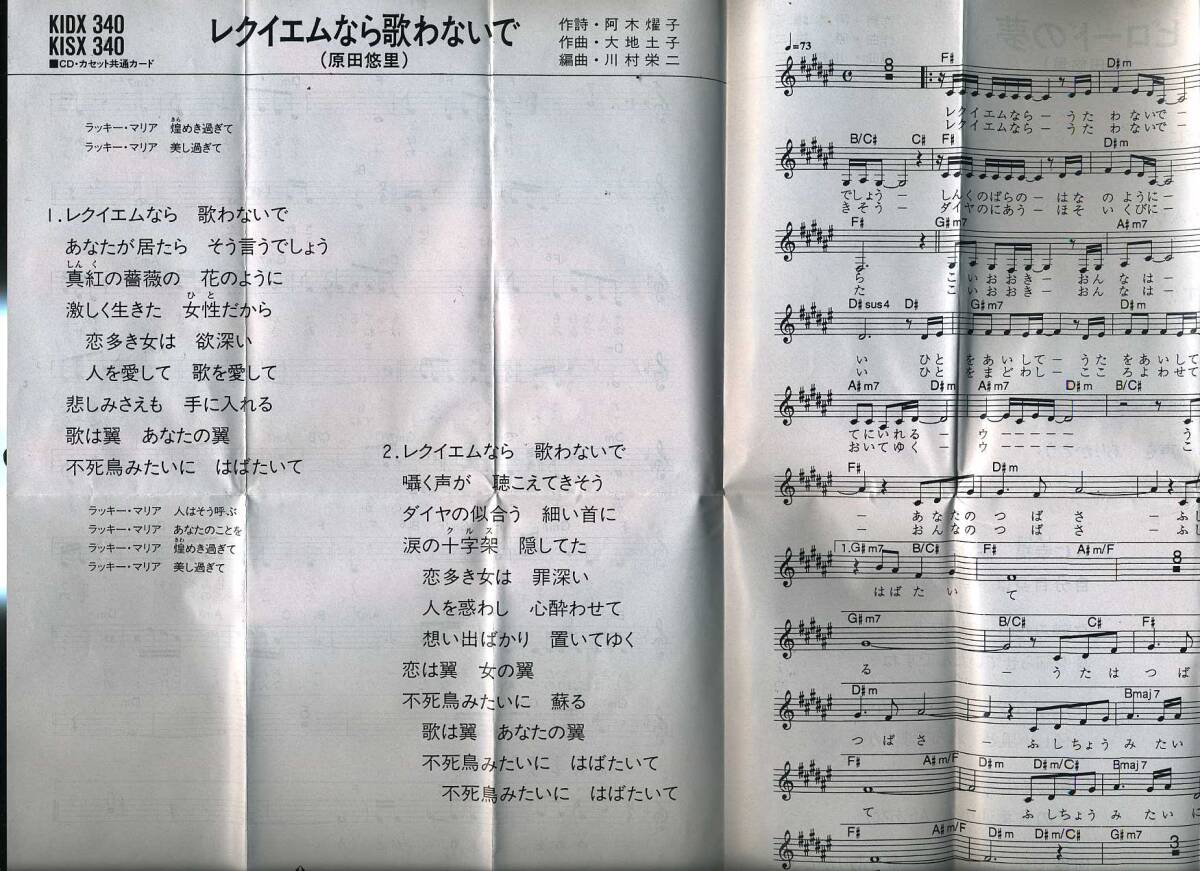 KIDX 340
KISX 340
■CD・カセット共通カード
レクイエムなら歌わないで
(原田悠里)
作詩・阿木燿子
作曲・大地土子
編曲・川村栄二
ラッキー・マリア 煌めき過ぎて
ラッキー・マリア 美し過ぎて
1.レクイエムなら 歌わないで
あなたが居たら そう言うでしょう
真紅の薔薇の 花のように
激しく生きた 女性だから
恋多き女は 欲深い
人を愛して 歌を愛して
悲しみさえも 手に入れる
歌は翼 あなたの翼
不死鳥みたいに はばたいて
ラッキー・マリア 人はそう呼ぶ
ラッキー・マリア あなたのことを
ラッキー・マリア 煌めき過ぎて
ラッキー・マリア 美し過ぎて
2.レクイエムなら 歌わないで
囁く声が 聴こえてきそう
ダイヤの似合う 細い首に
涙の十字架 隠してた
恋多き女は 罪深い
人を惑わし 心酔わせて
想い出ばかり 置いてゆく
恋は翼 女の翼
不死鳥みたいに 蘇る
歌は翼 あなたの翼
不死鳥みたいに はばたいて
不死鳥みたいに はばたいて
♩=73
F♯ D♯m
8
レクイエムなら － うた わないで －
レクイエムなら － うた わないで －
B/C♯ C♯ F♯ D♯m
でしょう － しんくのばらの － はな のように －
きそう － ダイヤのにあう － ほそ いくびに －
F♯ G♯m7 A♯m7
ら こ いおおき － おん なは －
た こ いおおき － おん なは －
D♯sus4 D♯ G♯m7 D♯m
い ひと をあいして － うた をあいして
い ひと をまどわし － ここ ろよわせて
A♯m7 D♯m A♯m7 D♯m B/C♯
てにいれる － ウ － － － － － う
おいてゆく － ウ － － － － － こ
F♯ D♯m
－ あなたの つ ば さ － ふし
－ おんなの つ ば さ － ふし
1.G♯m7 B/C♯ F♯ A♯m/F
8
はばた い て
G♯m7 B/C♯ C♯ F♯
る － うた は つ ば
D♯m Bmaj7
つ ば さ － ふしちょう み たい
F♯ A♯m/F D♯m D♯m/C♯ Bmaj7
て － ふしちょう み たい に
F♯ A♯m/F D♯m D♯m/C♯ G♯m7
3